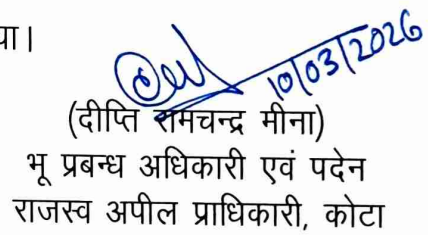 या।
10/03/2026
(दीप्ति रामचन्द्र मीना)
भू प्रबन्ध अधिकारी एवं पदेन
राजस्व अपील प्राधिकारी, कोटा